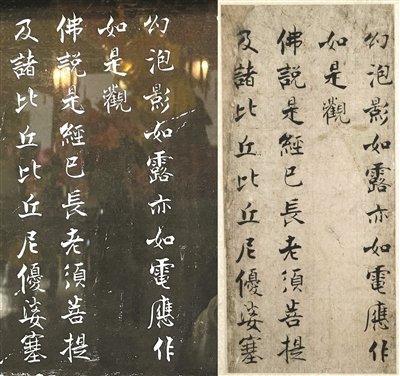 幻泡影如露亦如電應作
如是觀
佛說是經已長老須菩提
及諸比丘比丘尼優婆塞
幻泡影如露亦如電應作
如是觀
佛說是經已長老須菩提
及諸比丘比丘尼優婆塞